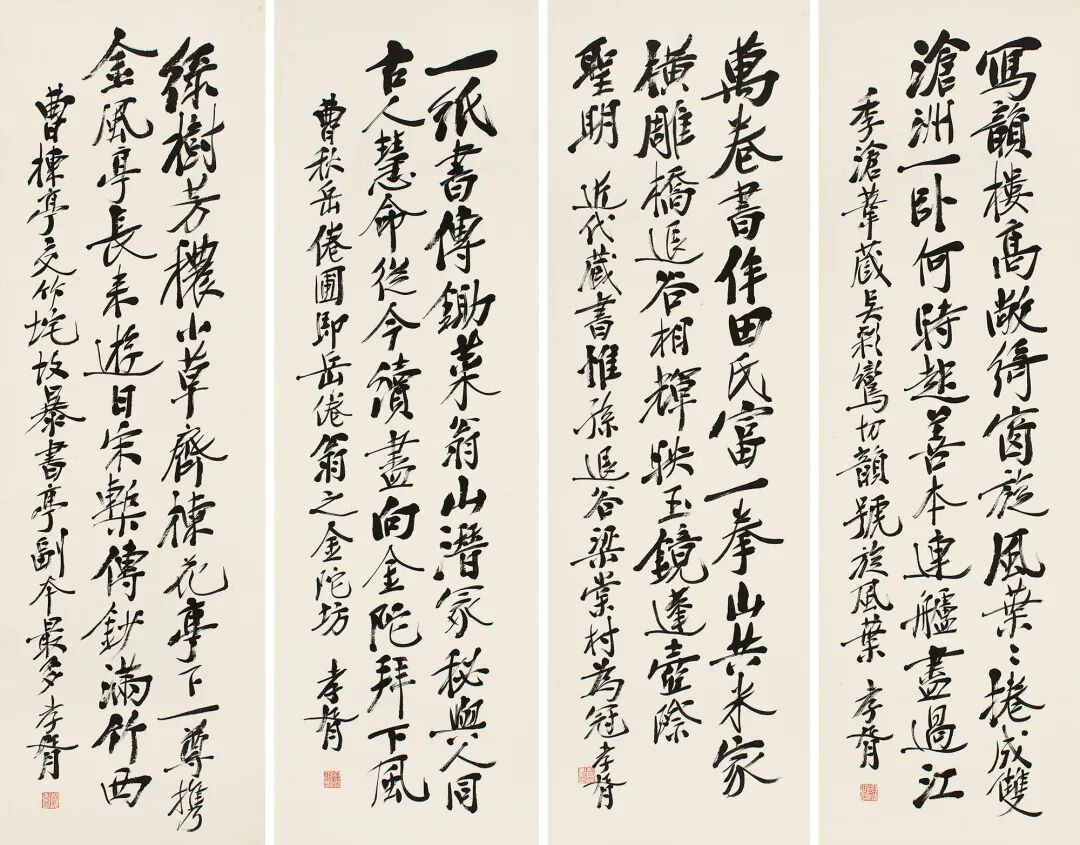 寫韻樓高敞綺窗旋風葉〻捲成雙
滄洲一卧何時起善本連艫盡過江
季滄葦藏吳彩鸞切韻號旋風葉 孝胥
萬卷書作田氏富一拳山共米家
橫雕橋退谷相輝映玉鏡蓬壺際
聖明 近代藏書惟孫退谷梁棠村為冠 孝胥
一紙書傳鋤菜翁山潛冢秘與人同
古人慧命從今續盡向金陀拜下風
曹秋岳倦圃即岳倦翁之金陀坊 孝胥
綠樹芳穠小草齊楝花亭下一尊攜
金風亭長來遊日宋槧傳鈔滿竹西
曹楝亭交竹垞故暴書亭副本最多 孝胥